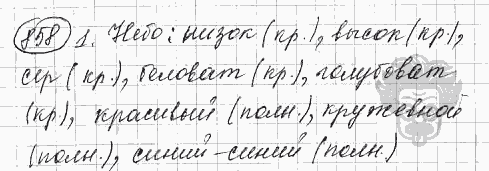 858 1. Небо: низок (кр.), высок (кр.),
сер (кр.), беловат (кр.), голубоват
(кр.), красивый (полн.), кружевной
(полн.), синий-синий (полн.)